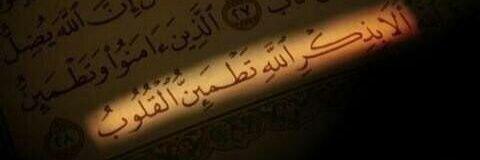 إِنَّ ٱللَّهَ يُضِلُّ
ٱلَّذِينَ ءَامَنُوا۟ وَتَطْمَئِنُّ ٢٧
أَلَا بِذِكْرِ ٱللَّهِ تَطْمَئِنُّ ٱلْقُلُوبُ ٢٨